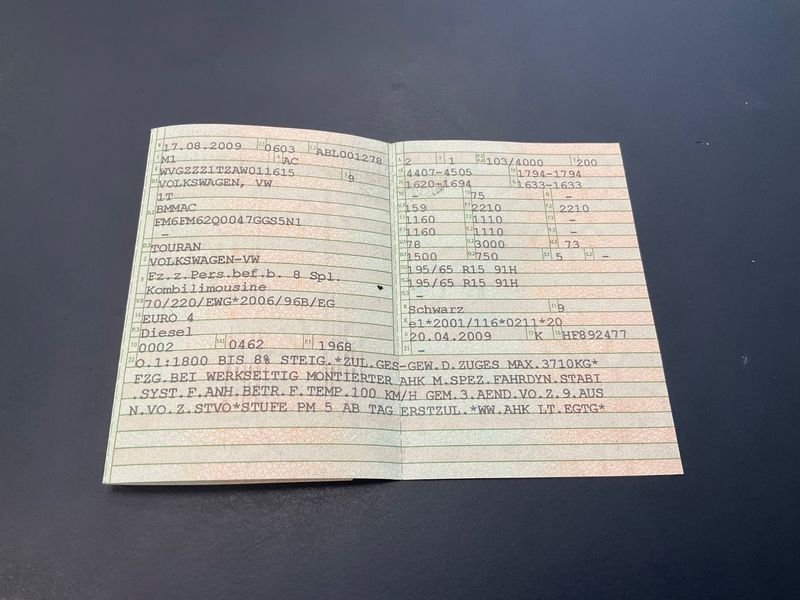 17.08.2009 0603 ABL001278
M1 AC
WVGZZZ1TZAW011615 9
VOLKSWAGEN, VW
1T
BMMAC
FM6FM62Q0047GGS5N1
–
TOURAN
VOLKSWAGEN-VW
Fz.z.Pers.bef.b. 8 Spl.
Kombilimousine
70/220/EWG*2006/96B/EG
EURO 4
Diesel
0002 0462 1968
2 1 103/4000 200
4407-4505 1794-1794
1620-1694 1633-1633
– 75 –
159 2210 2210
1160 1110 –
1160 1110 –
78 3000 73
1500 750 5 –
195/65 R15 91H
195/65 R15 91H
–
Schwarz 9
e1*2001/116*0211*20
20.04.2009 K HF892477
–
O.1:1800 BIS 8% STEIG.*ZUL.GES-GEW.D.ZUGES MAX.3710KG*
FZG.BEI WERKSEITIG MONTIERTER AHK M.SPEZ.FAHRDYN.STABI
.SYST.F.ANH.BETR.F.TEMP.100 KM/H GEM.3.AEND.VO.Z.9.AUS
N.VO.Z.STVO*STUFE PM 5 AB TAG ERSTZUL.*WW.AHK LT.EGTG*